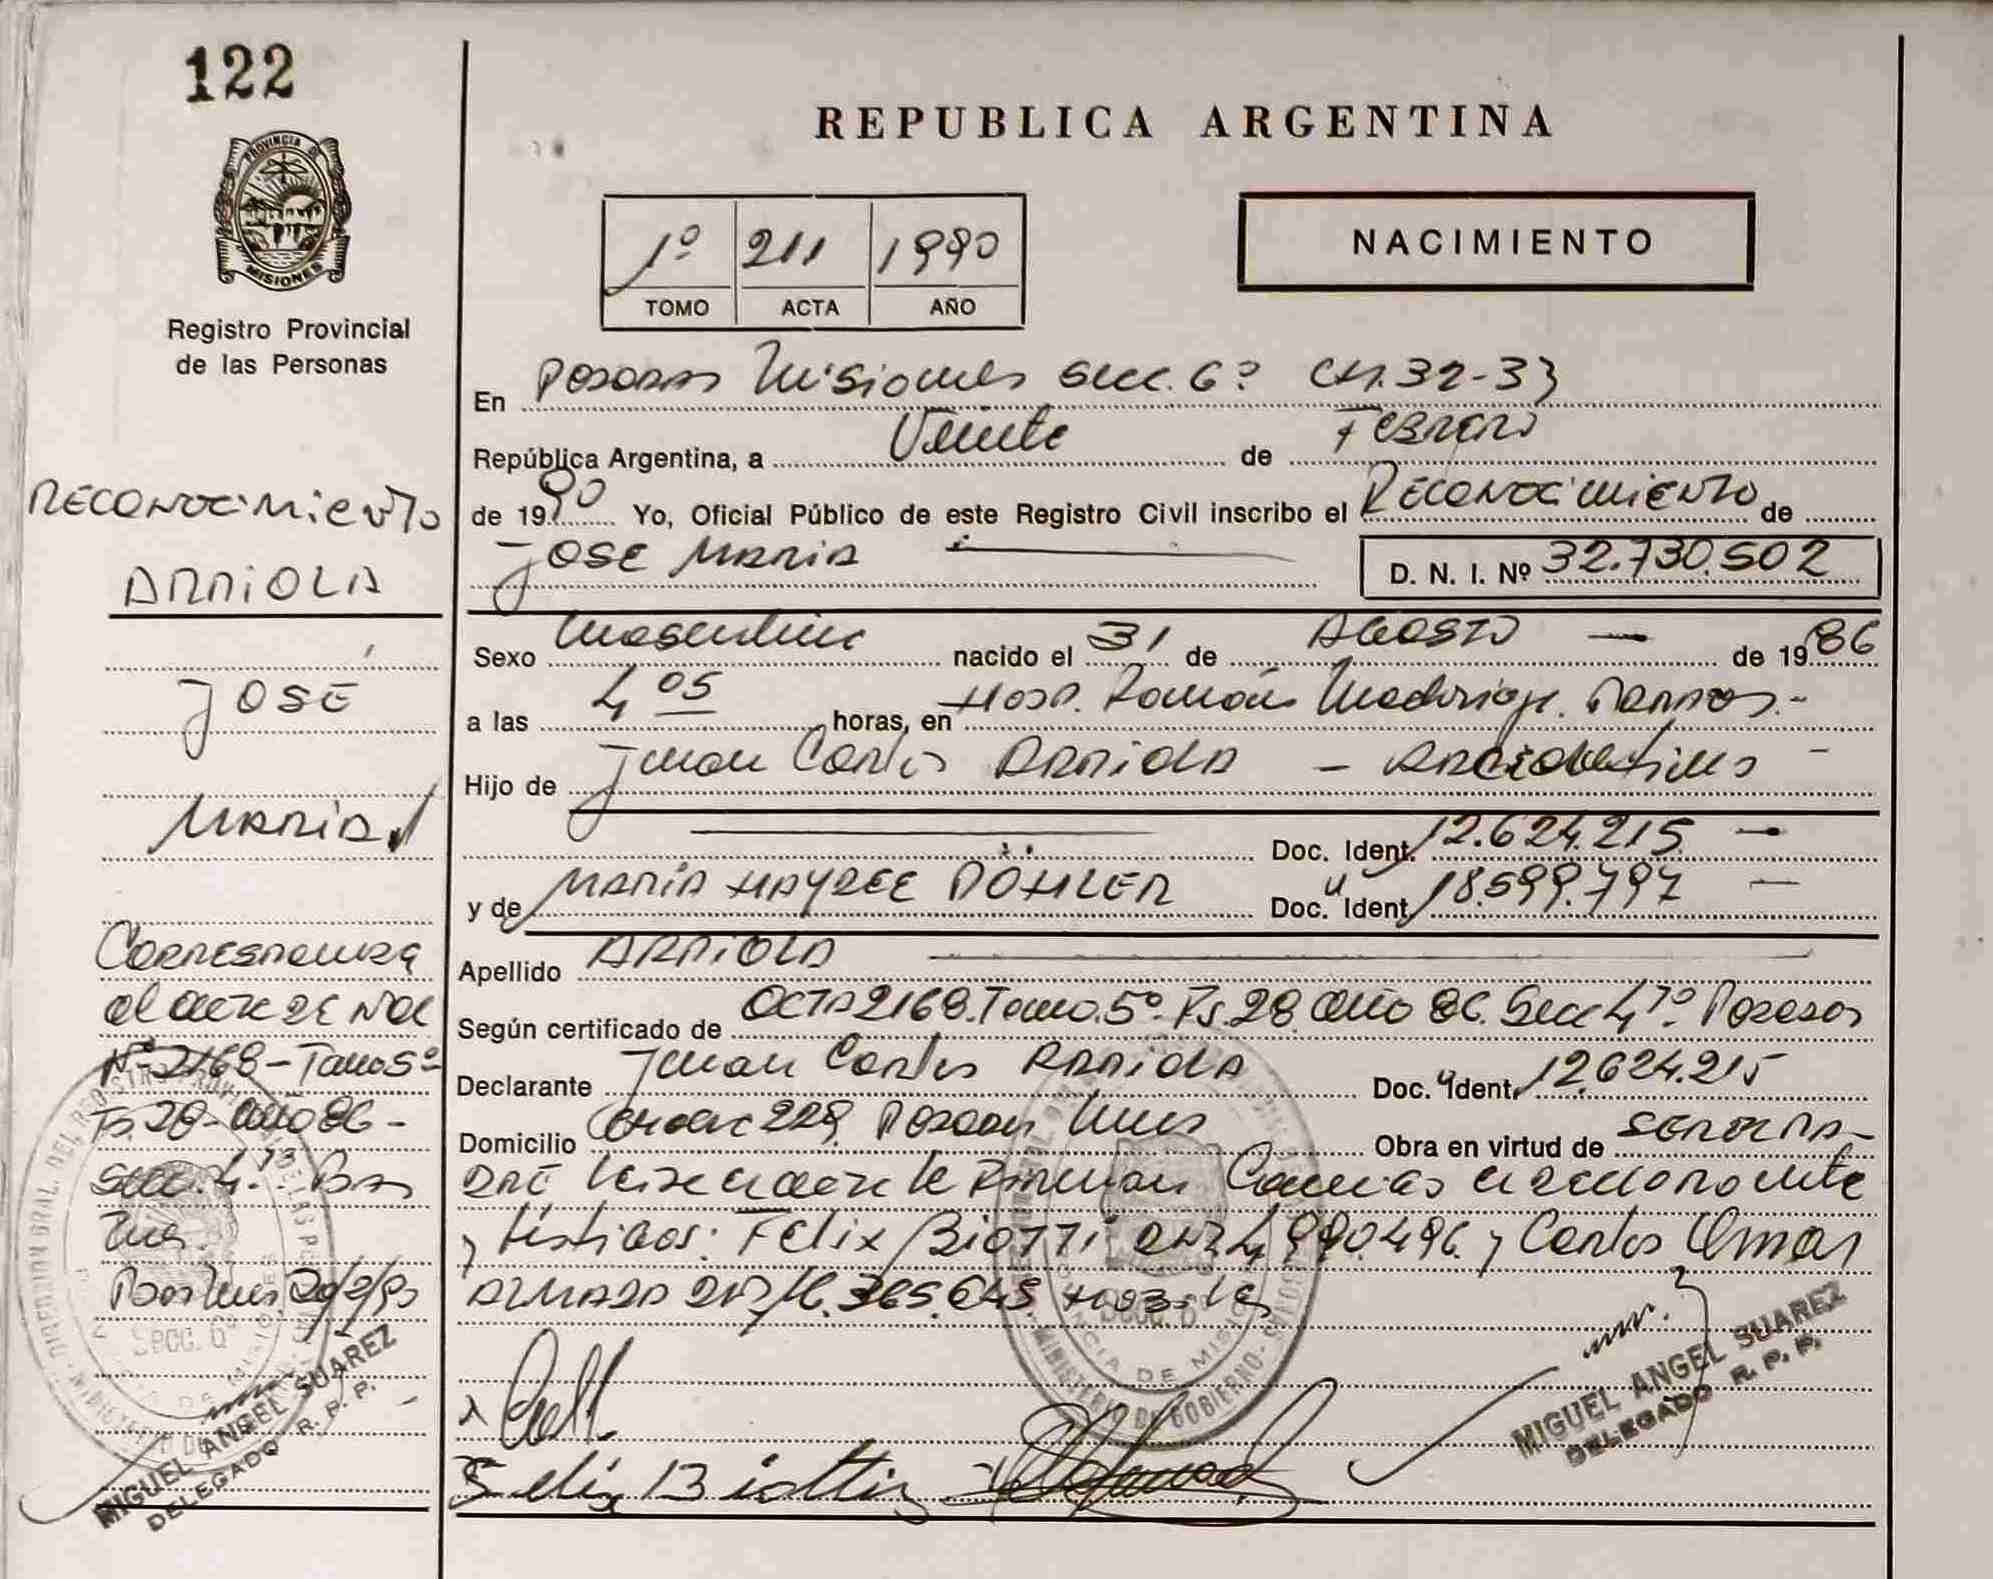 122
PROVINCIA DE
MISIONES
Registro Provincial
de las Personas
RECONOCIMIENTO
ARRIOLA
JOSE
MARIA
Corresponde
al acta de Nac
Nº 2168 - Tomo 5º
Fs. 28 - año 86 -
Secc. 4ª
20/2/90
Secc. 6
MIGUEL ANGEL SUAREZ
DELEGADO R. P. P.
REPUBLICA ARGENTINA
1º 211 1990
TOMO ACTA AÑO
NACIMIENTO
En Posadas Misiones Secc. 6º CH. 32-33
República Argentina, a Veinte de Febrero
de 1990 Yo, Oficial Público de este Registro Civil inscribo el Reconocimiento de
JOSE MARIA D. N. I. Nº 32.730.502
Sexo Masculino nacido el 31 de AGOSTO de 1986
a las 4 05 horas, en Hosp. Ramón Madariaga.
Hijo de Juan Carlos ARRIOLA -
Doc. Ident. 12.624.215 -
y de MARIA HAYDEE DÖHLER Doc. Ident. 18.599.797 -
Apellido ARRIOLA
Según certificado de Acta 2168. Tomo 5º. Fs. 28. año 86. Secc 4º. Posadas
Declarante Juan Carlos ARRIOLA Doc. Ident. 12.624.215
Domicilio 229. Posadas Obra en virtud de
Carlos
y testigos: Felix Biotti DNI 4.990.496. y Carlos Omar
365.645.
Felix Biotti
MIGUEL ANGEL SUAREZ
DELEGADO R. P. P.